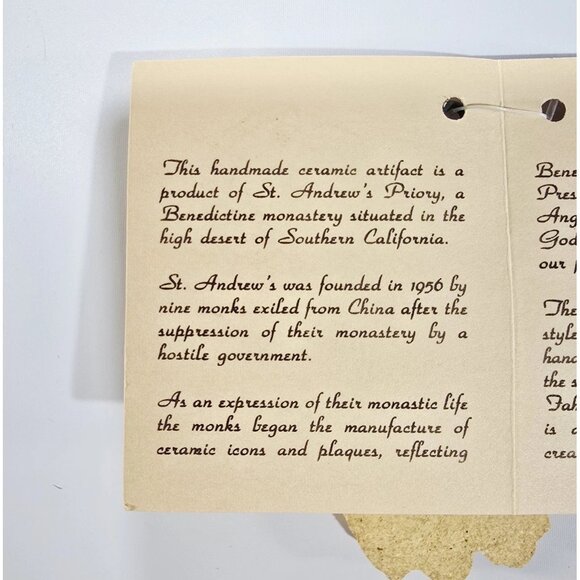 This handmade ceramic artifact is a
product of St. Andrew's Priory, a
Benedictine monastery situated in the
high desert of Southern California.
St. Andrew's was founded in 1956 by
nine monks exiled from China after the
suppression of their monastery by a
hostile government.
As an expression of their monastic life
the monks began the manufacture of
ceramic icons and plaques, reflecting
Bene
Pres
Ang
God
our
The
style
hand
the s
Fah
is a
crea